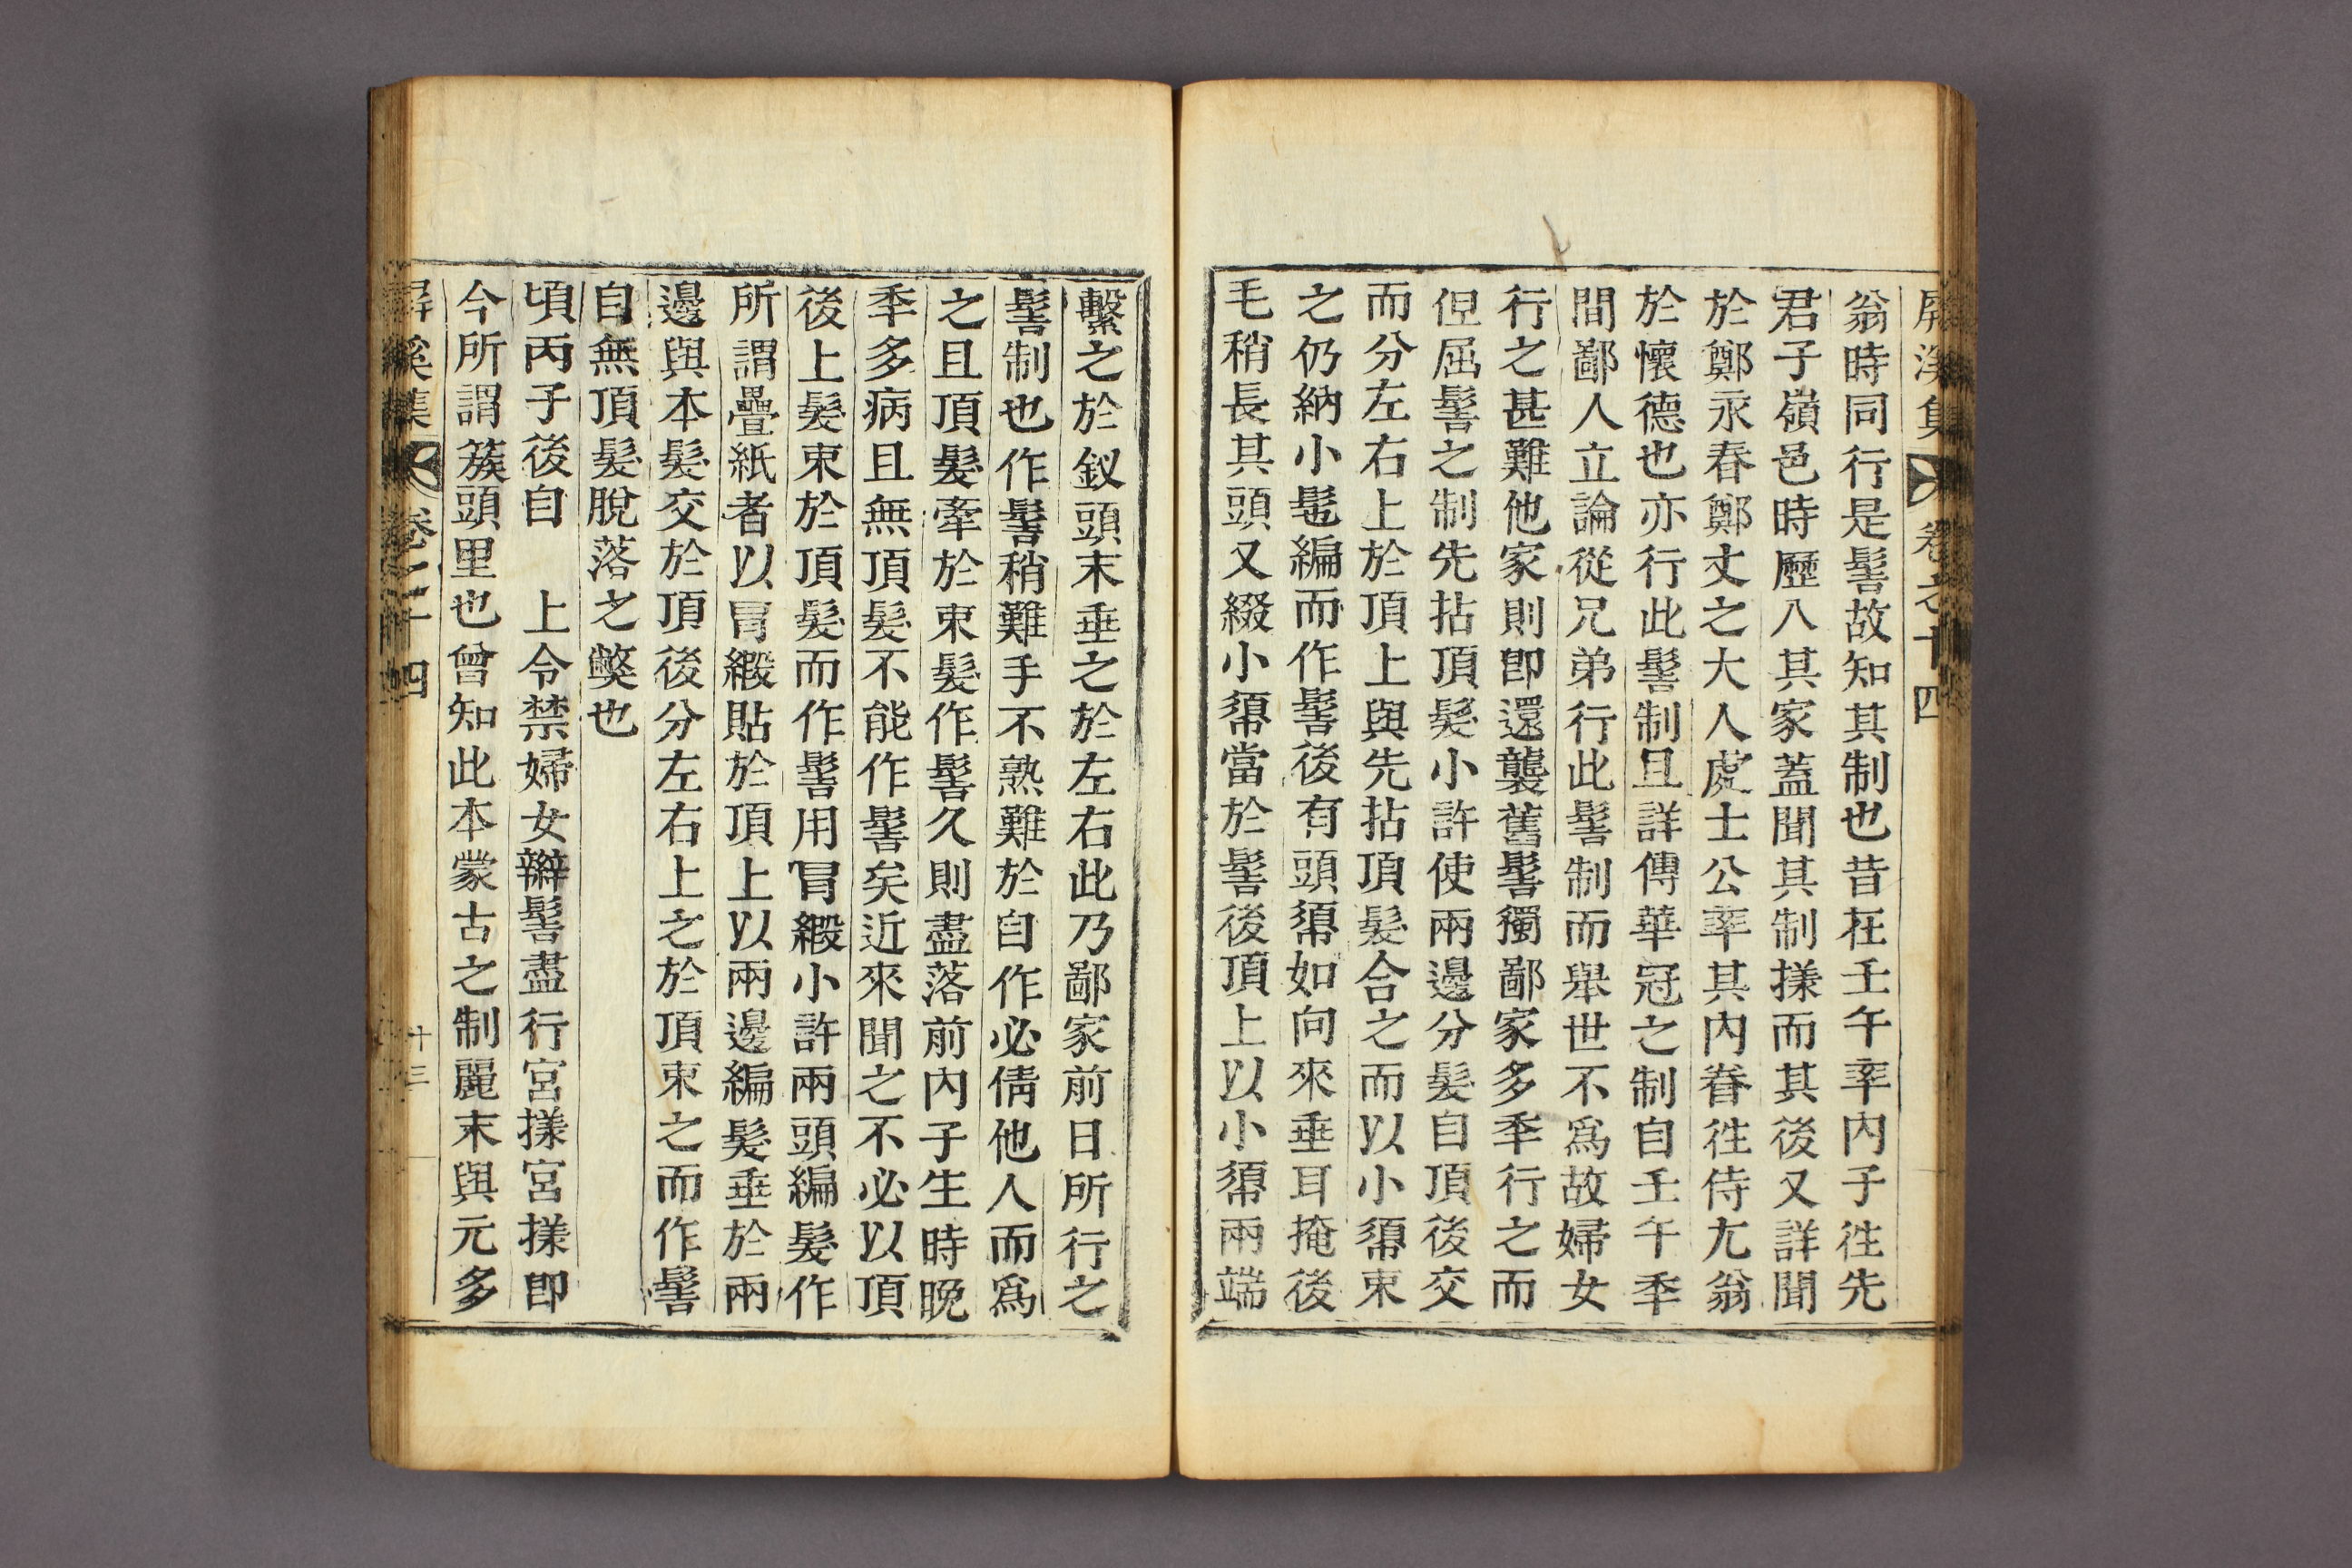 屏溪集 卷之十四
翁時同行是髻故知其制也昔在壬午率內子往先
君子嶺邑時歷入其家蓋聞其制㨾而其後又詳聞
於鄭永春鄭丈之大人處士公率其內眷往侍尤翁
於懷德也亦行此髻制且詳傳華冠之制自壬午季
間鄙人立論從兄弟行此髻制而舉世不爲故婦女
行之甚難他家則卽還襲舊髻獨鄙家多季行之而
但屈髻之制先拈頂髮小許使兩邊分髮自頂後交
而分左右上於頂上與先拈頂髮合之而以小㡏束
之仍納小髢編而作髻後有頭㡏如向來垂耳掩後
毛稍長其頭又綴小㡏當於髻後頂上以小㡏兩端
繫之於釵頭末垂之於左右此乃鄙家前日所行之
髻制也作髻稍難手不熟難於自作必倩他人而爲
之且頂髮牽於束髮作髻久則盡落前內子生時晚
季多病且無頂髮不能作髻矣近來聞之不必以頂
後上髮束於頂髮而作髻用冒緞小許兩頭編髮作
所謂疊紙者以冒緞貼於頂上以兩邊編髮垂於兩
邊與本髮交於頂後分左右上之於頂束之而作髻
自無頂髮脫落之獘也
頃丙子後自　上令禁婦女辮髻盡行宮㨾宮㨾卽
今所謂簇頭里也曾知此本蒙古之制麗末與元多
屏溪集 卷之十四 十三